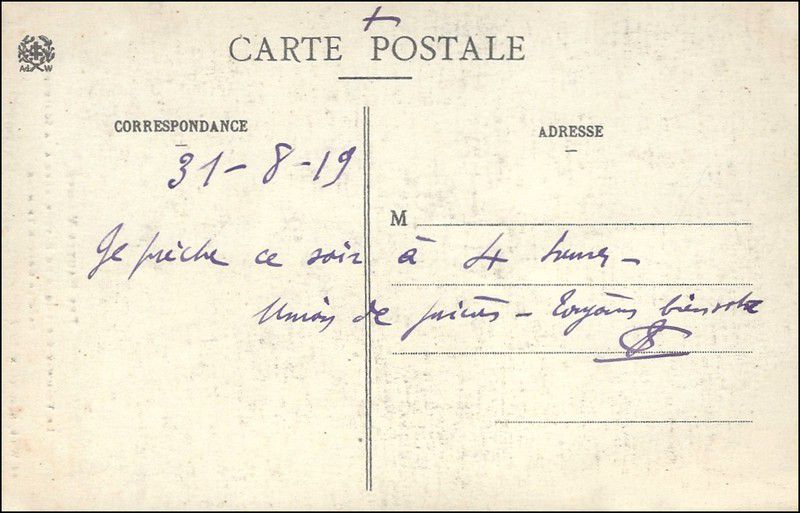 +
CARTE POSTALE
A W
CORRESPONDANCE
ADRESSE
31-8-19
M
Je prêche ce soir à 4 heures -
Union de prières - Toujours bien vôtre